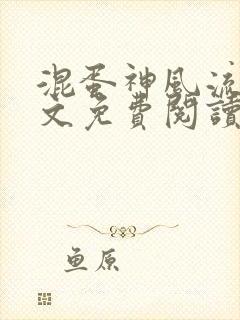 混蛋神風流
文免費閱讀
鱼原